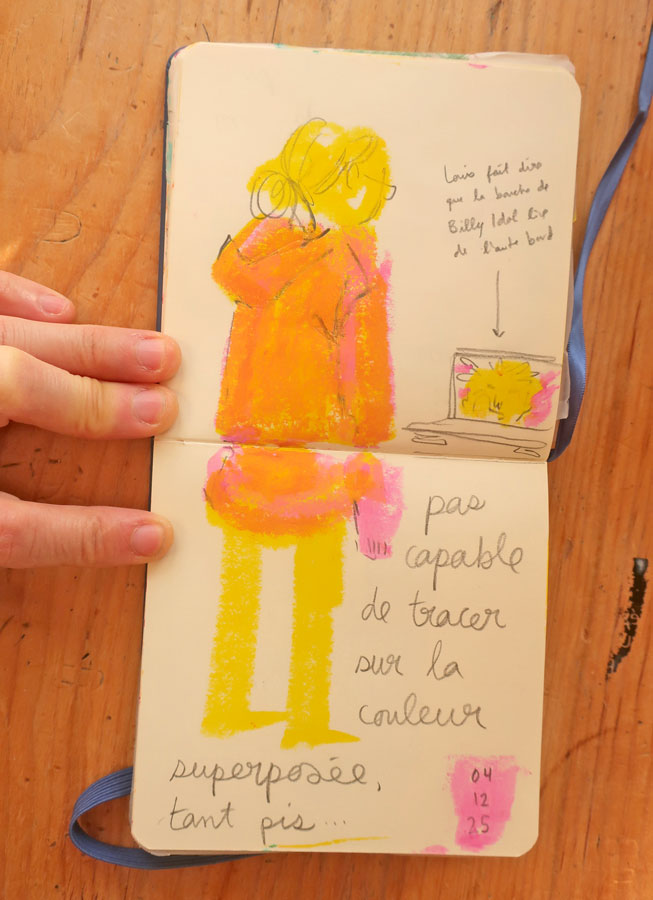 Louis fait dire
que la bouche de
Billy Idol lip
de l'autre bord
pas
capable
de tracer
sur la
couleur
superposée,
tant pis...
04
12
25